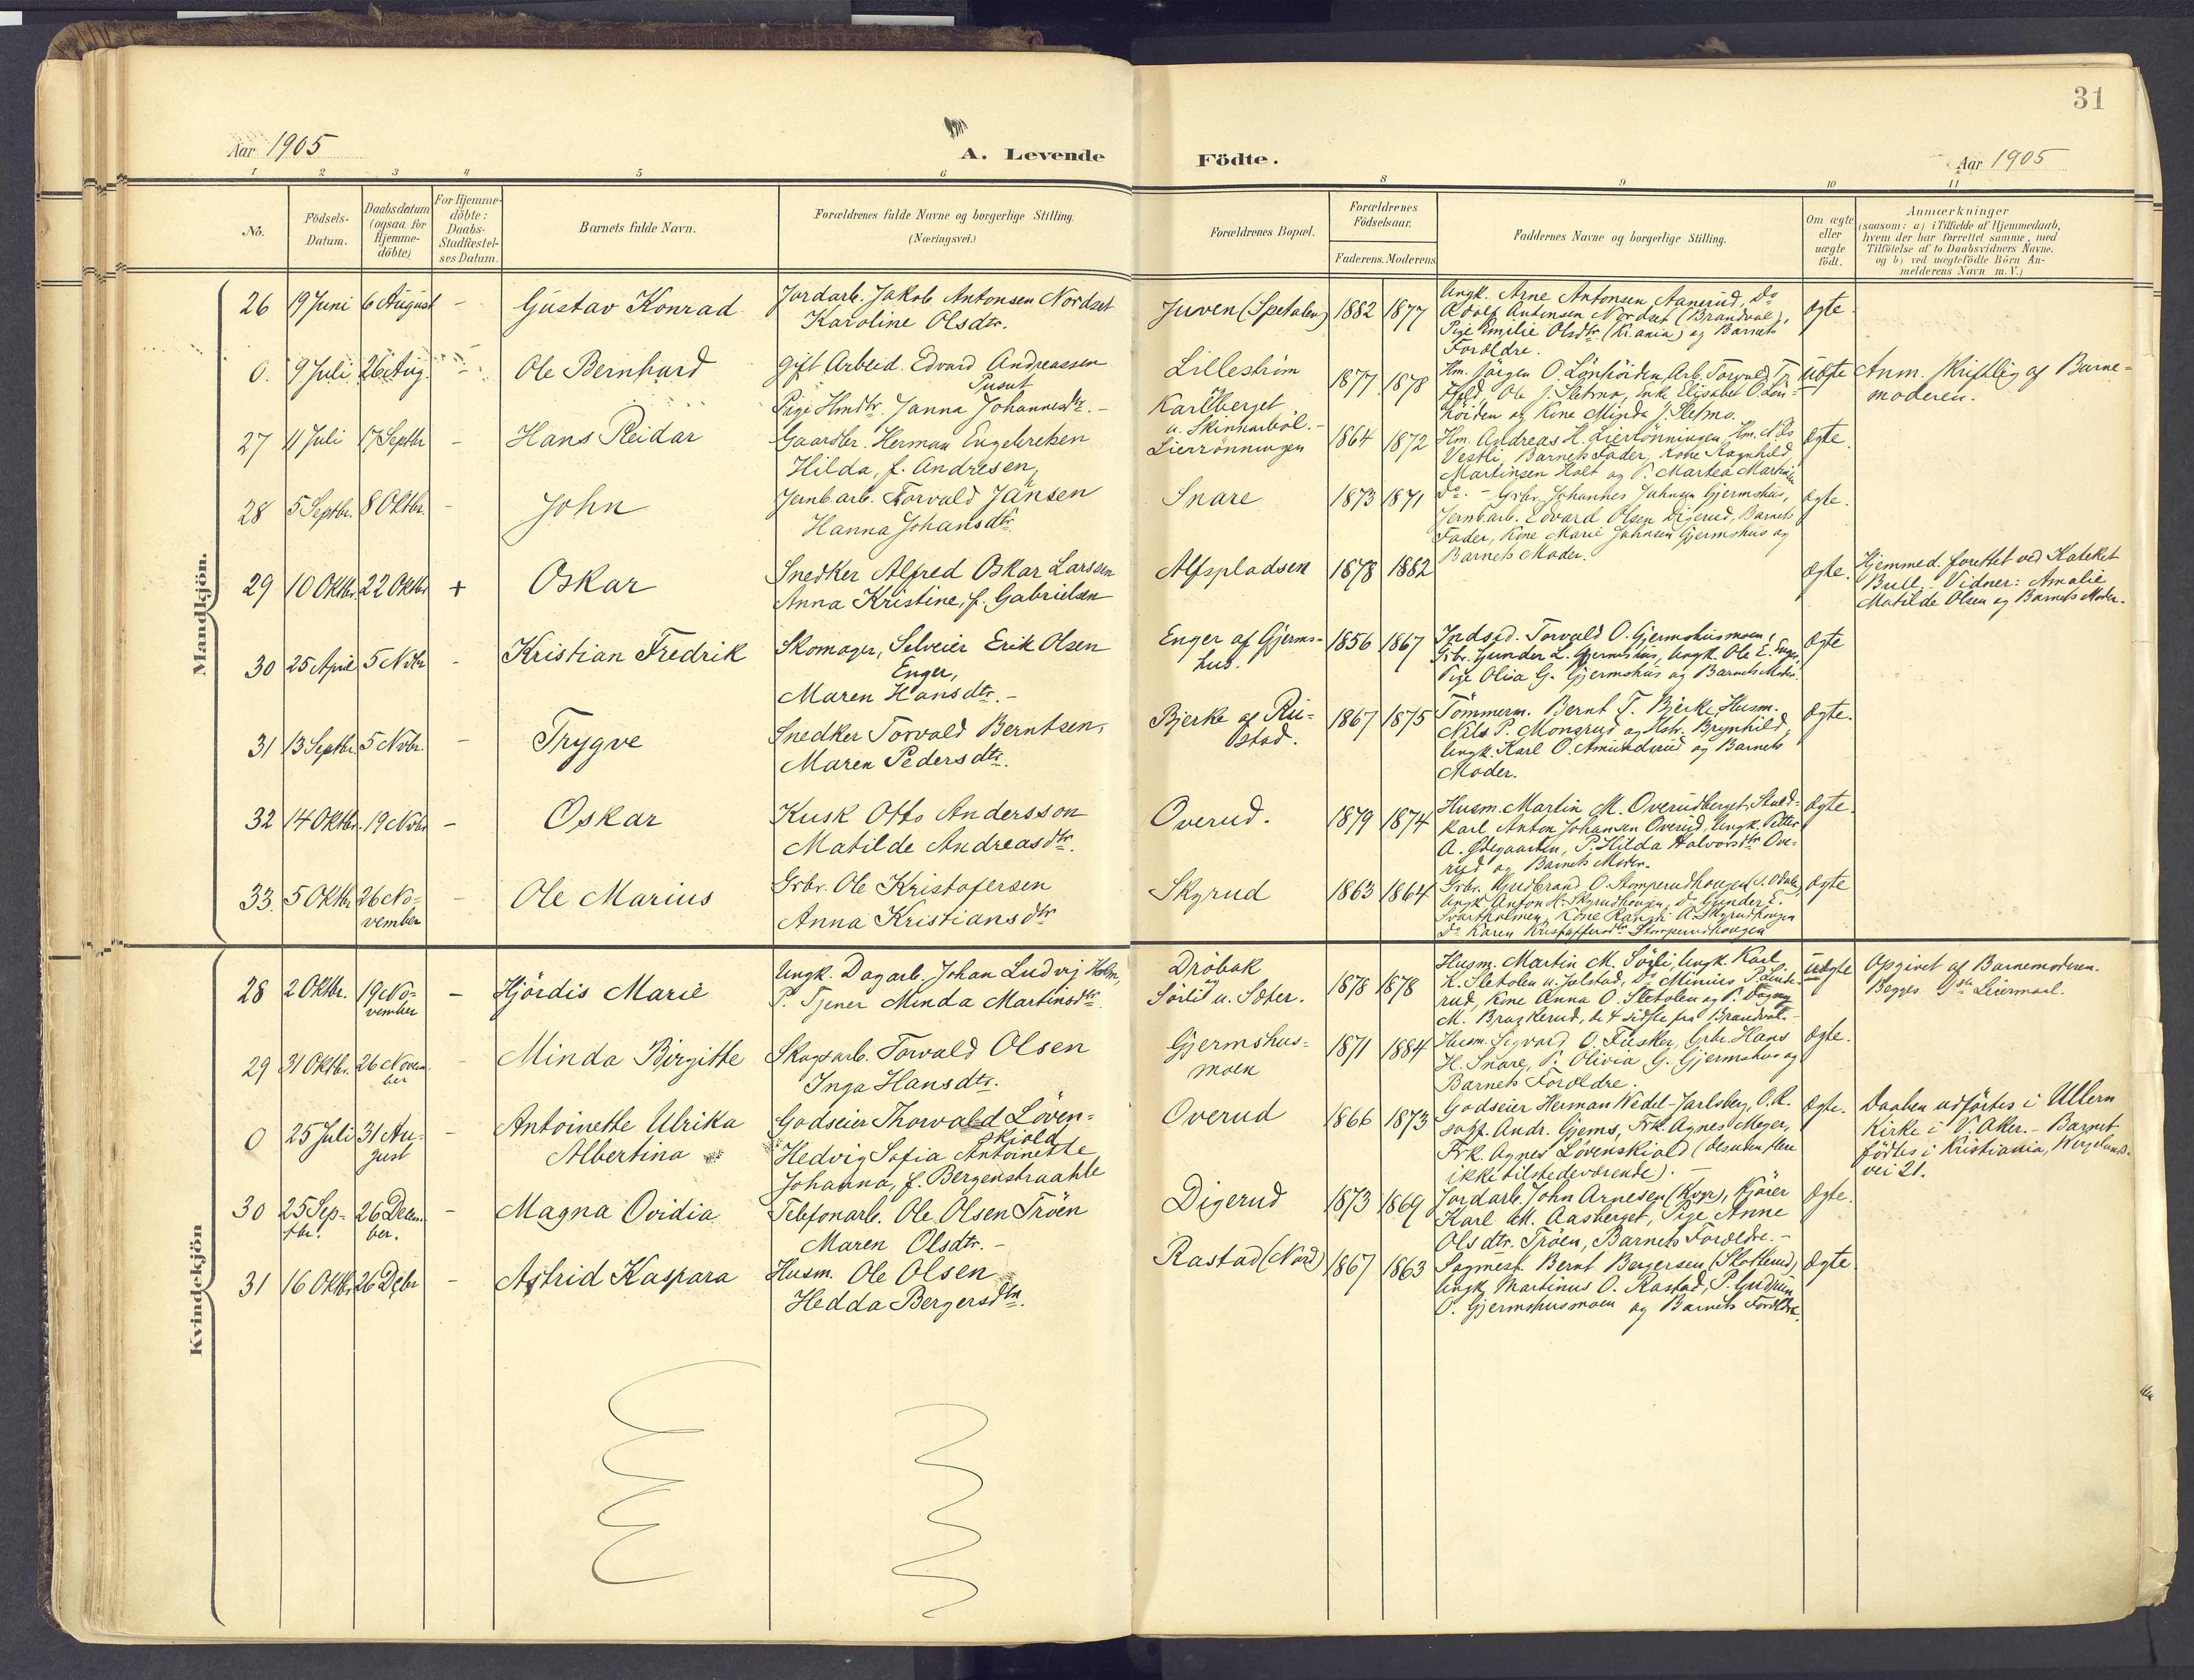 31
Aar 1905
A. Levende
Födte.
Aar 1905
1 2 3 4 5 6 8 9 10 11
No.
Födsels-
Datum.
Daabsdatum
(ogsaa for
Hjemme-
döbte)
For Hjemme-
döbte:
Daabs-
Stadfæstel-
ses Datum.
Barnets fulde Navn.
Forældrenes fulde Navne og borgerlige Stilling.
(Næringsvei.)
Forældrenes Bopæl.
Forældrenes
Födselsaar.
Faderens. Moderens
Faddernes Navne og borgerlige Stilling.
Om ægte
eller
uægte
födt.
Anmærkninger
(saasom: a) i Tilfælde af Hjemmedaab,
hvem der har forrettet samme, med
Tilföielse af to Daabsvidners Navne.
og b) ved uægtefödte Börn An-
melderens Navn m. V.)
Mandkjön.
26 19 Juni 6 August - Gustav Konrad
Jordarb. Jakob Antonsen Nordset
Karoline Olsdtr.
Juven (Spetalen) 1882 1877
Ungk. Arne Antonsen Aanerud, Do
Adolf Antonsen Nordset (Brandval),
Pige Emilie Olsdtr. (Kr.ania) og Barnets
Forældre.
Ægte
0. 9 Juli 26 Aug. - Ole Bernhard
gift Arbeid. Edvard Andreassen
Pusut
Pige Hmdtr. Janna Johannesdtr. -
Lilleström
Karlberget
u. Skinnarböl. -
1877 1878
Hm. Jörgen O. Lönhöiden, Arb. Torvald
Ole J. Sletmo, Enke Elisabet O. Lön-
höiden og Kone Minda J. Sletmo.
Uægte
Anm. skriftlig af Barne-
moderen.
27 11 Juli 17 Septbr - Hans Reidar
Gaardbr. Herman Engebretsen
Hilda, f. Andresen,
Lierrönningen 1864 1872
Hm. Andreas H. Lierrönningen, Hm. Nils
Vestli, Barnets Fader, Kone Ragnhild
Martinsen Holt og P. Martea Martins
Do. -
Ægte.
28 5 Septbr. 8 Oktbr. - John
Jernb.arb. Torvald Jansen
Hanna Johansdtr.
Snare 1873 1871
Grbr. Johannes Johnsen Gjermshus,
Jernb.arb. Edvard Olsen Digerud, Barnets
Fader, Kone Marie Johnsen Gjermshus og
Barnets Moder.
Ægte.
29 10 Oktbr. 22 Oktbr + Oskar
Snedker Alfred Oskar Larssen
Anna Kristine, f. Gabrielsen
Alfspladsen 1878 1882
Ægte.
Hjemmed. forettet ved Kateket
Bull. Vidner: Amalie
Matilde Olsen og Barnets Moder.
30 25 April 5 Novbr - Kristian Fredrik
Skomager, Selveier Erik Olsen
Enger,
Maren Hansdtr. -
Enger af Gjerms-
hus. 1856 1867
Indsed. Torvald O. Gjermshusmoen,
Grbr. Gunder L. Gjermshus, Ungk. Ole E. Enger,
Pige Olivia G. Gjermshus og Barnets Moder.
Ægte
31 13 Septbr. 5 Novbr. - Trygve
Snedker Torvald Berntsen,
Maren Pedersdtr.
Bjerke af Rii-
stad. 1867 1875
Tömmerm. Bernt T. Bjerke, Husm.
Nils P. Mongrud og Hstr. Brynhild,
Ungk. Karl O. Amundsrud og Barnets
Moder.
Ægte.
32 14 Oktbr. 19 Novbr - Oskar
Kusk Otto Andersson
Matilde Andreasdtr.
Overud. 1879 1874
Husm. Martin M. Overudberget, Stald-
karl Anton Johansen Overud, Ungk. Petter
A. Ødegaarden, P. Hilda Halvorsdtr Ove-
rud og Barnets Moder.
Ægte.
33. 5 Oktbr 26 No-
vember - Ole Marius
Grbr. Ole Kristofersen
Anna Kristiansdtr
Skyrud 1863 1864
Grbr. Gudbrand O. Stomperudhougen (S. Odalen),
Ungk Anton H. Skyrudhougen, Do Gunder E.
Svartholmen, Kone Rangdi A. Skyrudhougen
Do Karen Kristoffersdtr Stomperudhougen
Ægte
Kvindekjön
28 2 Oktbr. 19 No-
vember - Hjördis Marie
Ungk. Dagarb. Johan Ludvig Holm,
P. Tjener Minda Martinsdtr
Dröbak
Sörli u. Sæter. 1878 1878
Husm. Martin M. Sörli, Ungk. Karl
K. Sletolen u. Jolstad, Do Minius P. Linde-
rud, Kone Anna O. Sletolen og P. Dagny
M. Braskerud, de 4 sidste fra Brandval. -
Uægte
Opgivet af Barnemoderen.
Begges 1ste Leiermaal.
29 31 Oktbr. 26 Novem-
ber - Minda Birgitte
Skogsarb. Torvald Olsen
Inga Hansdtr.
Gjermshus-
moen 1871 1884
Husm. Sigvard O. Fusker, Grbr. Hans
H. Snare, P. Olivia G. Gjermshus og
Barnets Forældre.
Ægte.
0 25 Juli 31 Au-
gust - Antoinette Ulrika
Albertina
Godseier Thorvald Löven-
skiold
Hedvig Sofia Antoinette
Johanna, f. Bergenstraahle
Overud 1866 1873
Godseier Herman Wedel-Jarlsberg, O.R.
sagf. Andr. Gjems, Frk. Agnes Meyer,
Frk. Agnes Løvenskiold (desuden flere
ikke tilstedeværende). -
Ægte.
Daaben udførtes i Ullern
Kirke i V. Aker. - Barnet
födtes i Kristiania, Wergelands-
vei 21.
30 25 Sep-
tbr. 26 Decem-
ber. - Magna Ovidia
Telefonarb. Ole Olsen Tröen
Maren Olsdtr. -
Digerud 1873 1869
Jordarb. John Arnesen (Kvgr), Kjörer
Karl M. Aasberget, Pige Anne
Olsdtr. Tröen, Barnets Forældre. -
Ægte.
31 16 Oktbr 26 Decbr - Astrid Kaspara
Husm. Ole Olsen
Hedda Bergersdtr.
Rastad (Nord) 1867 1863
Sagmest. Bernt Bergersen (Skotterud),
Ungk Martinus O. Rastad, P. Gudrun
O. Gjermshusmoen og Barnets Forældre.
Ægte